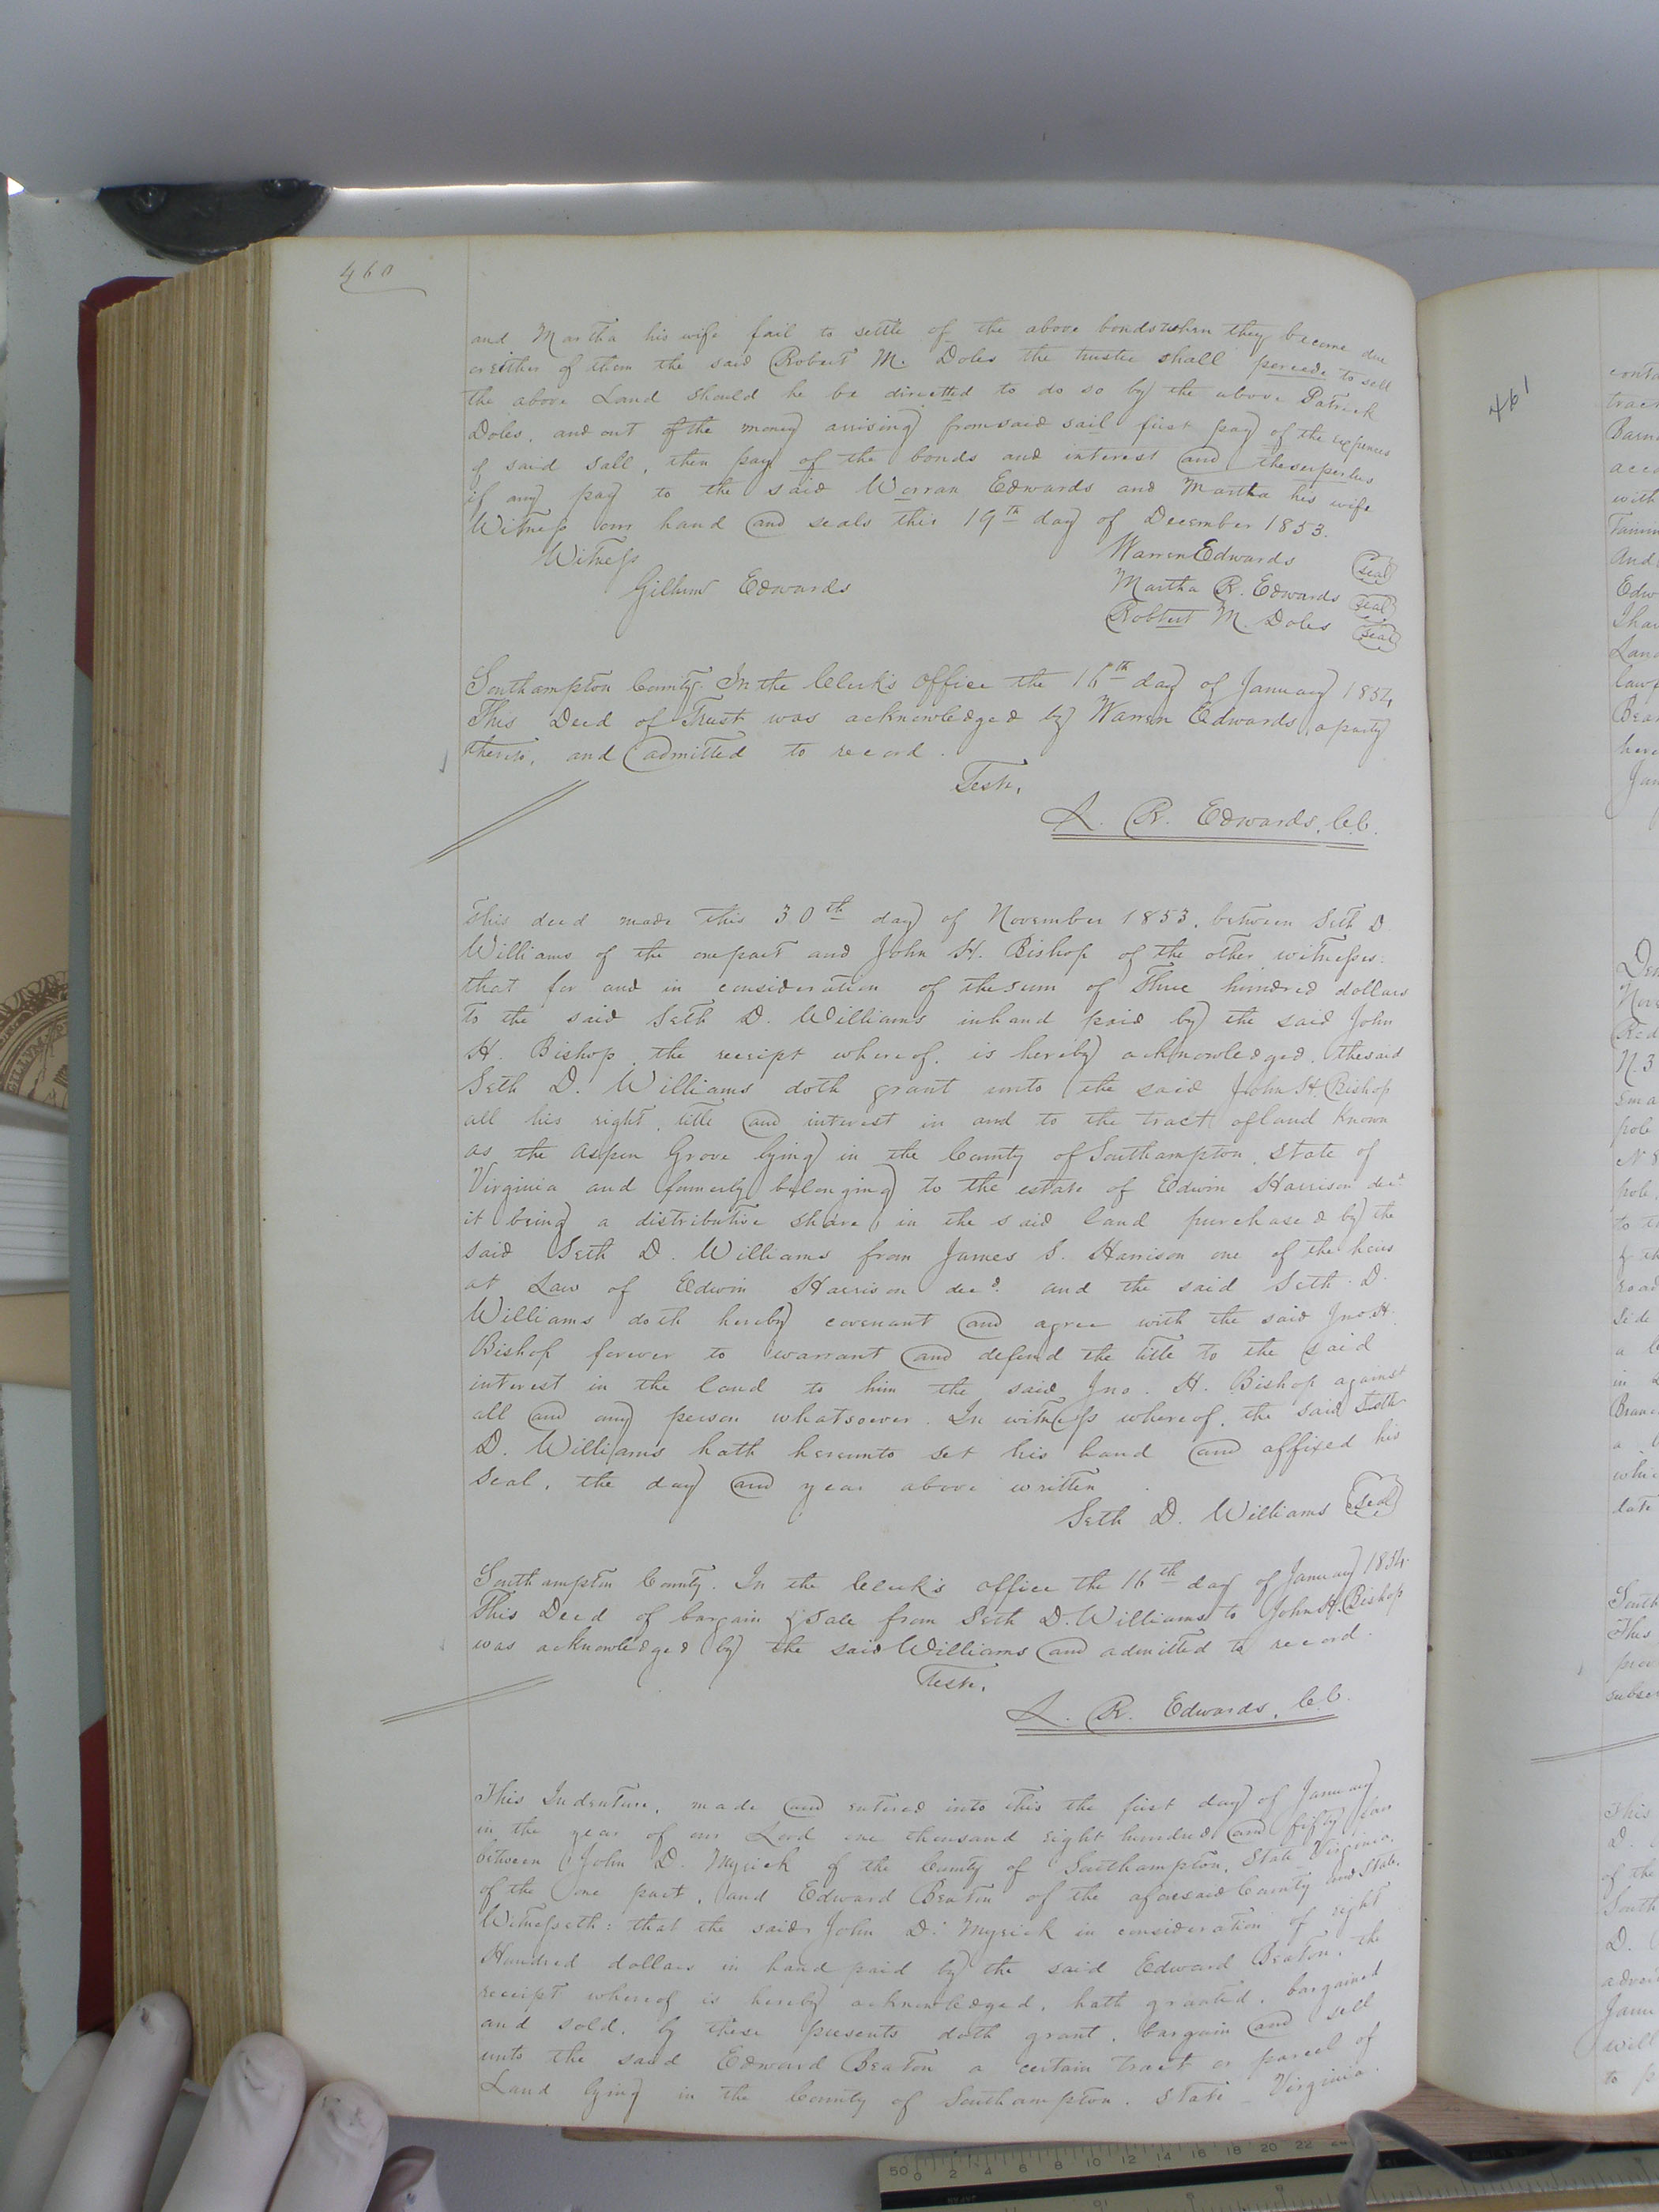 460
and Martha his wife fail to settle of the above bonds when they become due
or either of them the said Robert M. Doles the trustee shall perceede to sell
the above Land should he be directted to do so by the above Patrick
Doles, and out of the money arrising from said sail first pay of the expences
of said sall, then pay of the bonds and interest and the serperlus
if any pay to the said Warran Edwards and Martha his wife
Witness our hand and seals this 19th day of December 1853.
Witness
Warren Edwards seal
Gillum Edwards
Martha R. Edwards seal
Robtert M. Doles seal
Southampton County. In the Clerk's Office the 16th day of January 1854
This Deed of Trust was acknowledged by Warren Edwards a party
thereto, and admitted to record.
Teste,
L. R. Edwards, C.C.
This deed made this 30th day of November 1853, between Seth D
Williams of the one part and John H. Bishop of the other witnesses:
that for and in consideration of the sum of Three hundred dollars
To the said Seth D. Williams in hand paid by the said John
H. Bishop, the receipt whereof, is hereby acknowledged, the said
Seth D. Williams doth grant unto the said John H. Bishop
all his right, title and interest in and to the tract of land known
as the Aspen Grove lying in the County of Southampton, State of
Virginia and formerly belonging to the estate of Edwin Harrison decd
it being a distributive share, in the said land purchased by the
said Seth D. Williams from James S. Harrison one of the heirs
at Law of Edwin Harrison decd. and the said Seth. D.
Williams doth hereby covenant and agree with the said Jno. H.
Bishop forever to warrant and defend the title to the said
interest in the land to him the said Jno. H. Bishop against
all and any person whatsoever. In witness whereof, the said Seth
D. Williams hath hereunto set his hand and affixed his
Seal, the day and year above written.
Seth D. Williams seal
Southampton County. In the Clerk's office the 16th day of January 1854.
This Deed of bargain & Sale from Seth D. Williams to John H. Bishop
was acknowledged by the said Williams and admitted to record.
Teste,
L. R. Edwards, C.C.
This Indenture, made and entered into this the first day of January
in the year of our Lord one thousand eight hundred and fifty four
between John D. Myrick of the County of Southampton, State Virginia,
of the one part, and Edward Beaton of the aforesaid County and State.
Witnesseth: that the said John D. Myrick in consideration of eight
Hundred dollars in hand paid by the said Edward Beaton, the
receipt whereof is hereby acknowledged, hath granted, bargained
and sold, by these presents doth grant, bargain and sell
unto the said Edward Beaton a certain tract or parcel of
Land lying in the County of Southampton, State Virginia.
461